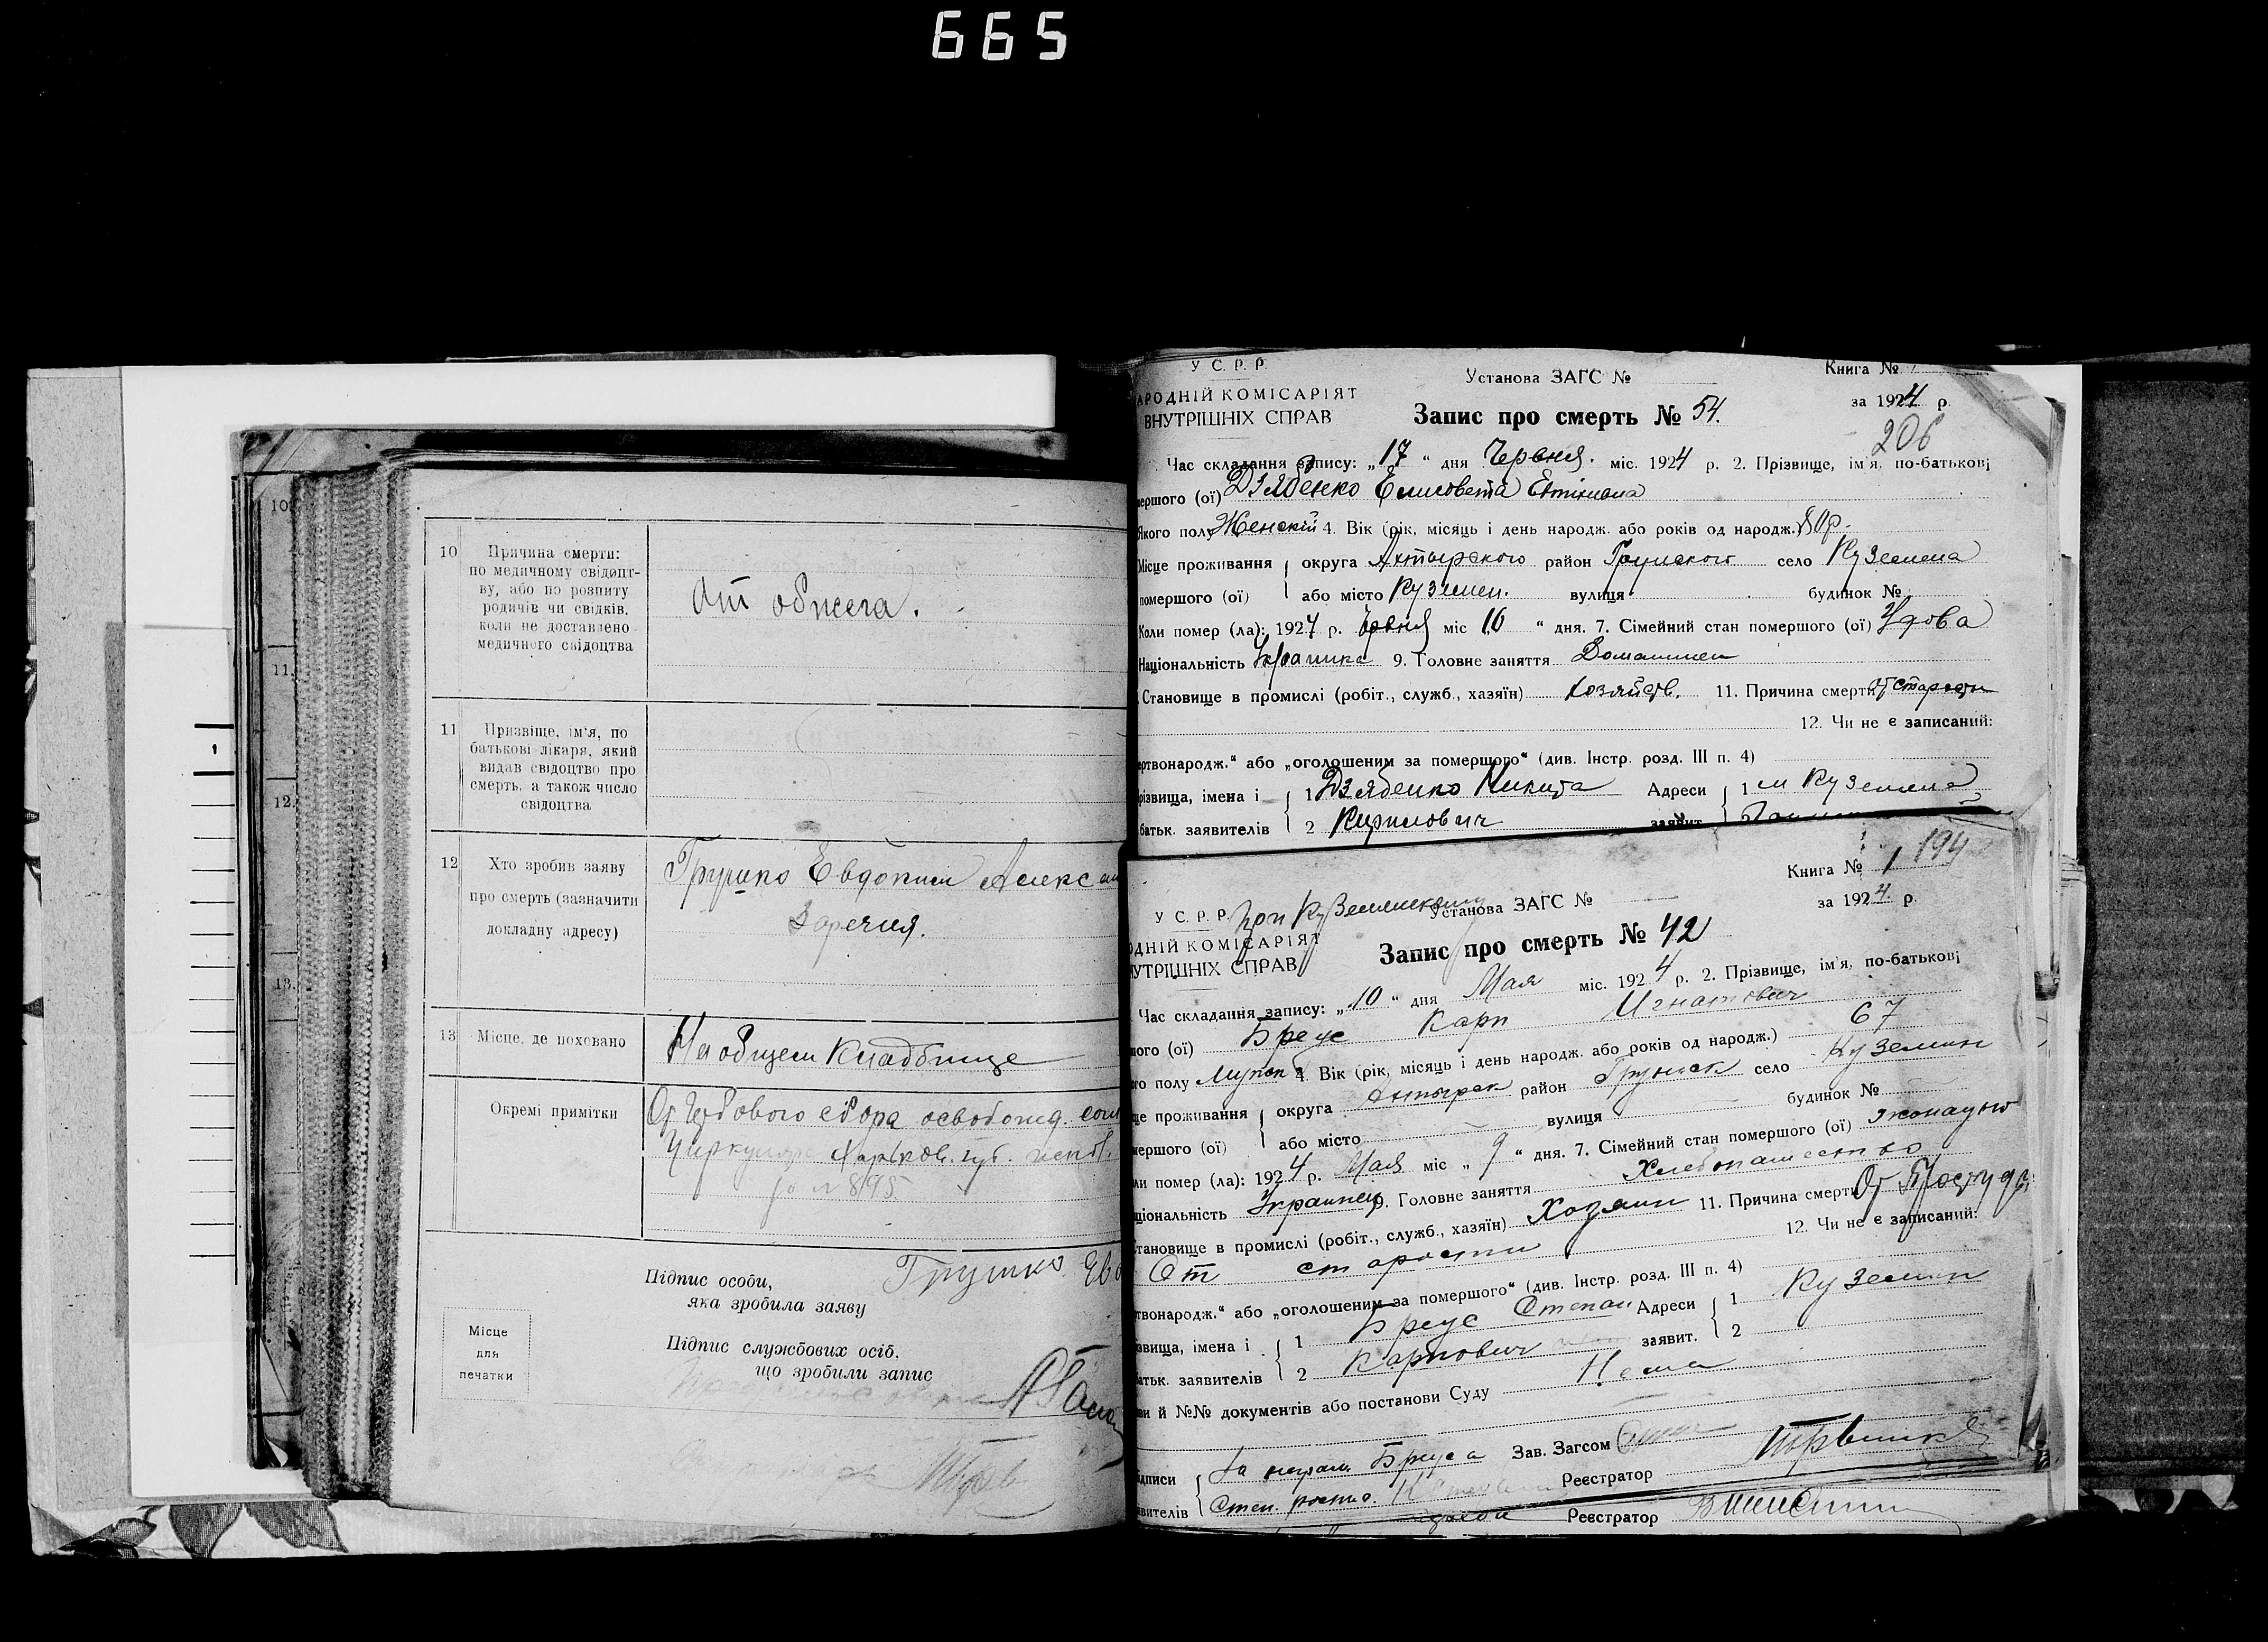 665
10.
11.
12.
13.
1
10 Причина смерти:
по медичному свідоцт-
ву, або по розпиту
родичів чи свідків,
коли не доставлено
медичного свідоцтва
От обжега.
11 Призвіще, ім'я, по
батькові лікаря, який
видав свідоцтво про
смерть, а також число
свідоцтва
12 Хто зробив заяву
про смерть (зазначити
докладну адресу)
Грушко Евдокии Алексан
Заречия.
13 Місце, де поховано
На общем Кладбище
Окремі примітки
От Гербового сбора освобожд.
Циркуляр Харьков. губ.
895
Підпис особи,
яка зробила заяву
Грушко Евд
Місце
для
печатки
Підпис службових осіб,
що зробили запис
У С. Р. Р.
АРОДНІЙ КОМІСАРІЯТ
ВНУТРІШНІХ СПРАВ
Установа ЗАГС №
Книга №
за 1924 р.
Запис про смерть № 54.
206
Час складання запису: „17 “ дня Червня. міс. 1924 р. 2. Прізвище, ім'я, по-батькові
мершого (ої) Дзябенко Елисовета
Якого полу Женскій 4. Вік (рік, місяць і день народж. або років од народж.) 80р.
Місце проживання округа Ахтырского район Грунского село Куземена
помершого (ої) або місто Куземен. вулиця будинок №
Коли помер (ла): 1924 р. Червня міс 16 “ дня. 7. Сімейний стан помершого (ої) Удова
Національність Украинка 9. Головне заняття Домашнем
Становище в промислі (робіт., служб., хазяїн) хозяйств. 11. Причина смерти От старости
12. Чи не є записаний:
ертвонародж.“ або „оголошеним за померщого“ (див. Інстр. розд. III п. 4)
різвища, імена і 1 Дзябенко Никита Адреси 1 м Куземена
батьк. заявителів 2 Кирилович заявит.
Книга № 1 194
за 1924. р.
У С. Р. Р. при Куземенском Установа ЗАГС №
ОДНІЙ КОМІСАРІЯТ
НУТРІШНІХ СПРАВ
Запис про смерть № 42
Час складання запису: „10 “ дня Мая міс. 1924 р. 2. Прізвище, ім'я, по-батькові
шого (ої) Бреус Карп Игнатович
го полу Мужск 4. Вік (рік, місяць і день народж. або років од народж.) 67
це проживання округа Ахтырск район Грунск село Куземин
мершого (ої) або місто вулиця будинок №
ли помер (ла): 1924 р. Мая міс „ 9 “ дня. 7. Сімейний стан помершого (ої) жонатый
ціональність Украинец 9. Головне заняття Хлебопашество
тановище в промислі (робіт., служб., хазяїн) Хозяин 11. Причина смерти От Простуды
От старости 12. Чи не є записаний:
ртвонародж.“ або „оголошеним за помершого“ (див. Інстр. розд. III п. 4)
звища, імена і 1 Бреус Степан Адреси 1 Куземин
атьк. заявителів 2 Карпович заявит. 2
ви й №№ документів або постанови Суду Нема
ідписи За неграм. Бреуса Зав. Загсом
явителів Степ. роспис. Реєстратор
Реєстратор